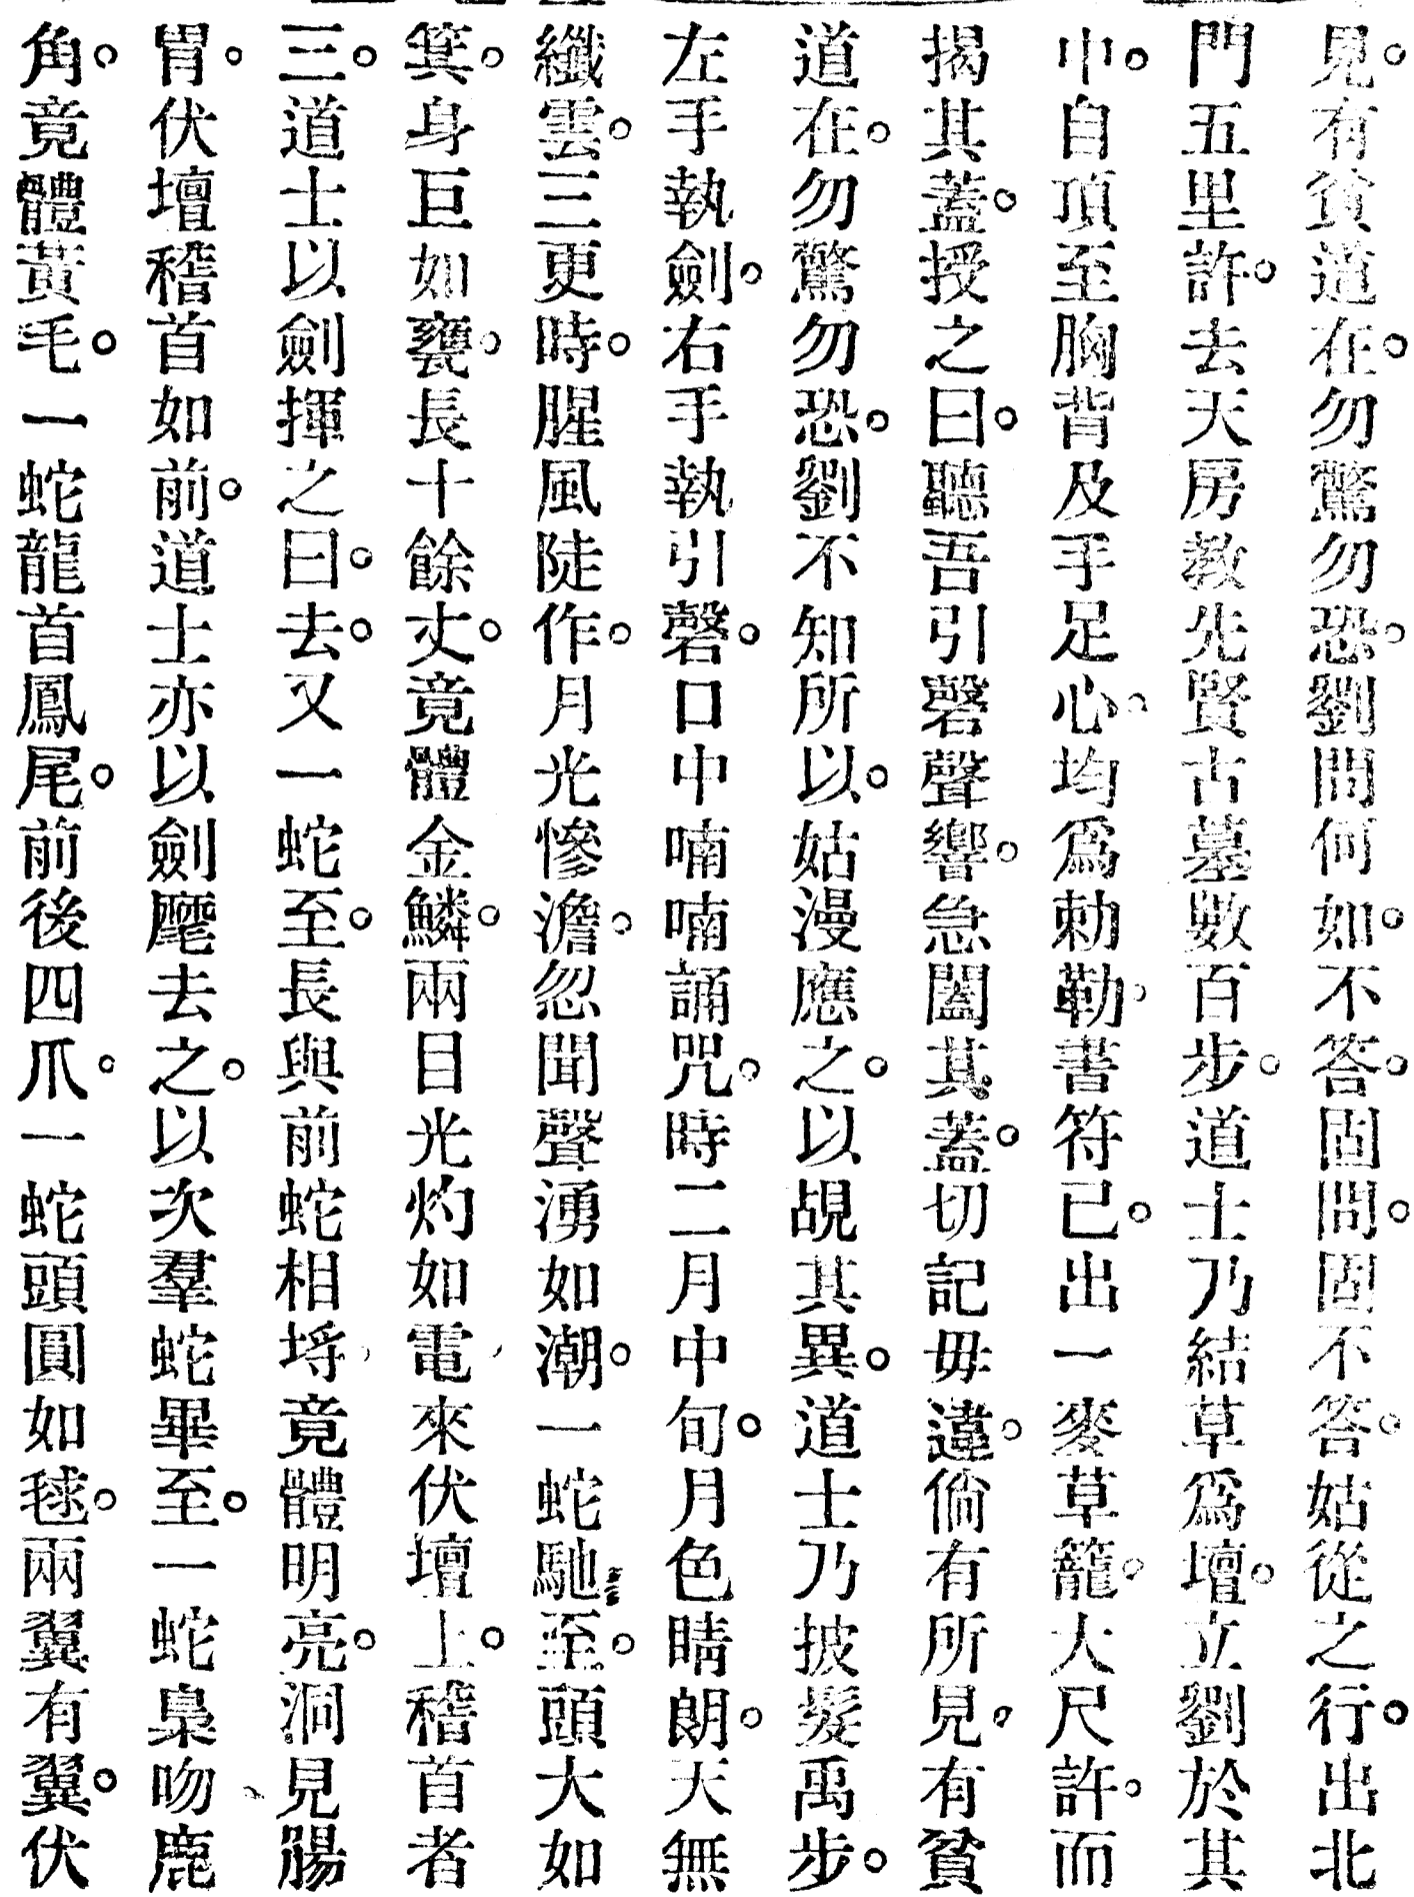 見。有貧道在。勿驚勿恐。劉問何如。不答。固問。固不答。姑從之行。出北
門五里許。去天房教先賢古墓數百步。道士乃結草爲壇。立劉於其
中。自項至胸背及手足心。均爲勅勒。書符已。出一麥草籠。大尺許。而
揭其蓋。授之曰。聽吾引磬聲響。急闔其蓋。切記毋違。倘有所見。有貧
道在。勿驚勿恐。劉不知所以。姑漫應之。以覘其異。道士乃披髮禹步。
左手執劍。右手執引磬。口中喃喃誦咒。時二月中旬。月色晴朗。天無
纖雲。三更時。腥風陡作。月光慘澹。忽聞聲湧如潮。一蛇馳至。頭大如
箕。身巨如甕。長十餘丈。竟體金鱗。兩目光灼如電、來伏壇上。稽首者
三。道士以劍揮之曰。去。又一蛇至。長與前蛇相埒、竟體明亮。洞見腸
胃。伏壇稽首如前。道士亦以劍麾去之。以次羣蛇畢至。一蛇梟吻、鹿
角。竟體黃毛。一蛇龍首鳳尾。前後四爪。一蛇頭圓如毬。兩翼有翼。伏